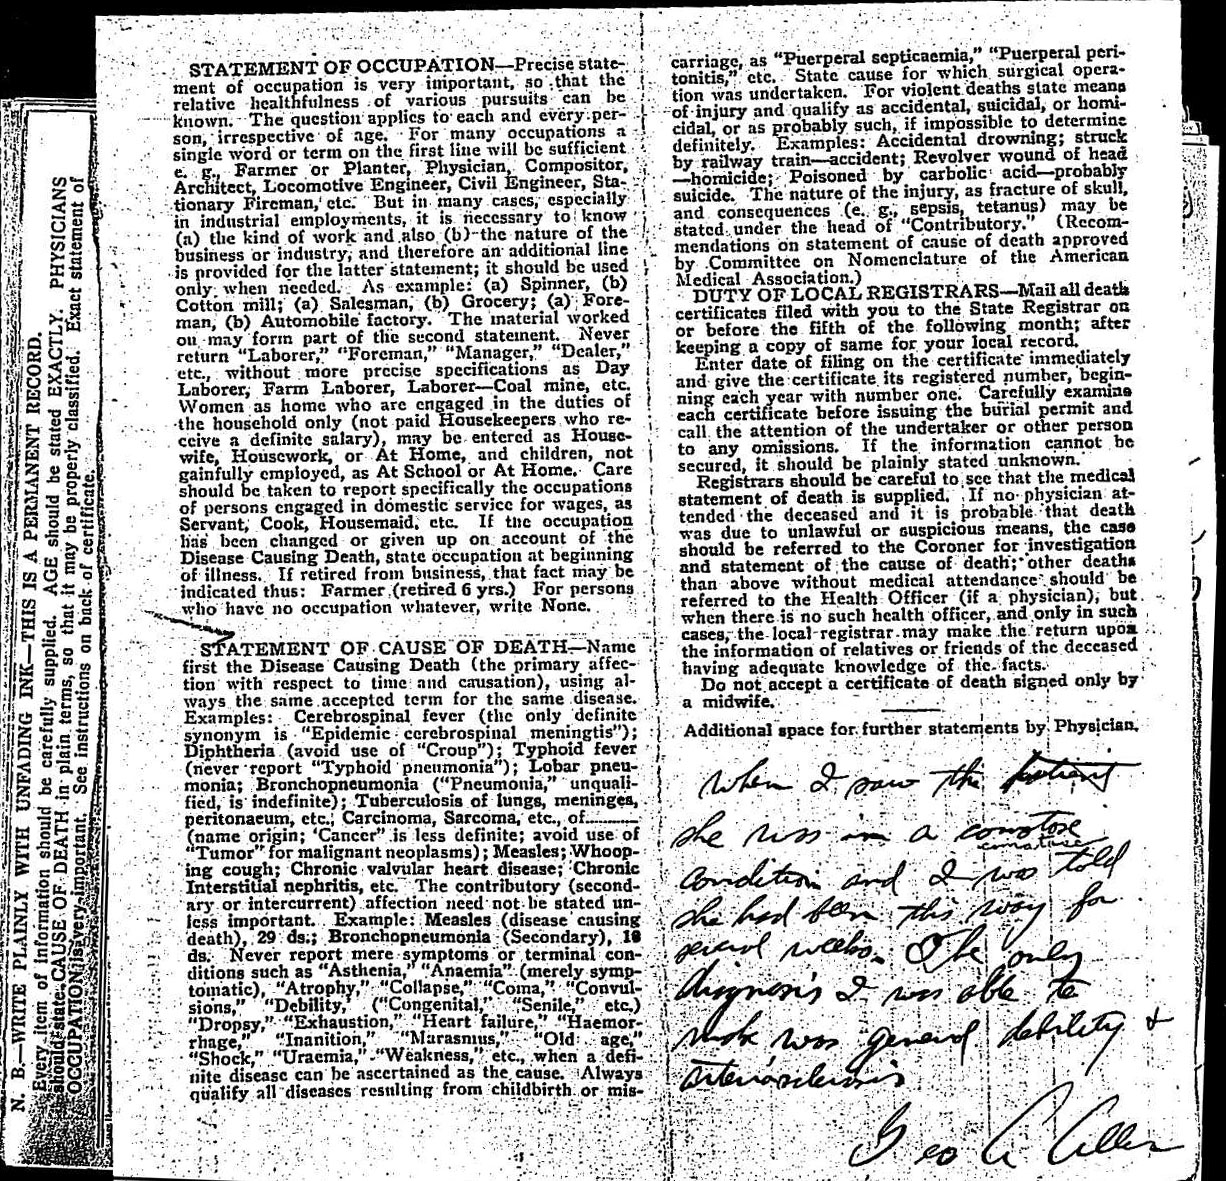 STATEMENT OF OCCUPATION—Precise state-
ment of occupation is very important, so that the
relative healthfulness of various pursuits can be
known. The question applies to each and every per-
son, irrespective of age. For many occupations a
single word or term on the first line will be sufficient
e. g., Farmer or Planter, Physician, Compositor,
Architect, Locomotive Engineer, Civil Engineer, Sta-
tionary Fireman, etc. But in many cases, especially
in industrial employments, it is necessary to know
(a) the kind of work and also (b) the nature of the
business or industry, and therefore an additional line
is provided for the latter statement; it should be used
only when needed. As example: (a) Spinner, (b)
Cotton mill; (a) Salesman, (b) Grocery; (a) Fore-
man, (b) Automobile factory. The material worked
on may form part of the second statement. Never
return "Laborer," "Foreman," "Manager," "Dealer,"
etc., without more precise specifications as Day
Laborer, Farm Laborer, Laborer—Coal mine, etc.
Women as home who are engaged in the duties of
the household only (not paid Housekeepers who re-
ceive a definite salary), may be entered as House-
wife, Housework, or At Home, and children, not
gainfully employed, as At School or At Home. Care
should be taken to report specifically the occupations
of persons engaged in domestic service for wages, as
Servant, Cook, Housemaid, etc. If the occupation
has been changed or given up on account of the
Disease Causing Death, state occupation at beginning
of illness. If retired from business, that fact may be
indicated thus: Farmer (retired 6 yrs.) For persons
who have no occupation whatever, write None.
STATEMENT OF CAUSE OF DEATH—Name
first the Disease Causing Death (the primary affec-
tion with respect to time and causation), using al-
ways the same accepted term for the same disease.
Examples: Cerebrospinal fever (the only definite
synonym is "Epidemic cerebrospinal meningtis");
Diphtheria (avoid use of "Croup"); Typhoid fever
(never report "Typhoid pneumonia"); Lobar pneu-
monia; Bronchopneumonia ("Pneumonia," unquali-
fied, is indefinite); Tuberculosis of lungs, meninges,
peritonaeum, etc., Carcinoma, Sarcoma, etc., of..........
(name origin; 'Cancer" is less definite; avoid use of
"Tumor" for malignant neoplasms); Measles; Whoop-
ing cough; Chronic valvular heart disease; Chronic
Interstitial nephritis, etc. The contributory (second-
ary or intercurrent) affection need not be stated un-
less important. Example: Measles (disease causing
death), 29 ds.; Bronchopneumonia (Secondary), 18
ds. Never report mere symptoms or terminal con-
ditions such as "Asthenia," "Anaemia" (merely symp-
tomatic), "Atrophy," "Collapse," "Coma," "Convul-
sions," "Debility," ("Congenital," "Senile," etc.)
"Dropsy," "Exhaustion," "Heart failure," "Haemor-
rhage," "Inanition," "Marasmus," "Old age,"
"Shock," "Uraemia," "Weakness," etc., when a defi-
nite disease can be ascertained as the cause. Always
qualify all diseases resulting from childbirth or mis-
carriage, as "Puerperal septicaemia," "Puerperal peri-
tonitis," etc. State cause for which surgical opera-
tion was undertaken. For violent deaths state means
of injury and qualify as accidental, suicidal, or homi-
cidal, or as probably such, if impossible to determine
definitely. Examples: Accidental drowning; struck
by railway train—accident; Revolver wound of head
—homicide; Poisoned by carbolic acid—probably
suicide. The nature of the injury, as fracture of skull,
and consequences (e. g., sepsis, tetanus) may be
stated under the head of "Contributory." (Recom-
mendations on statement of cause of death approved
by Committee on Nomenclature of the American
Medical Association.)
DUTY OF LOCAL REGISTRARS—Mail all death
certificates filed with you to the State Registrar on
or before the fifth of the following month; after
keeping a copy of same for your local record.
Enter date of filing on the certificate immediately
and give the certificate its registered number, begin-
ning each year with number one. Carefully examine
each certificate before issuing the burial permit and
call the attention of the undertaker or other person
to any omissions. If the information cannot be
secured, it should be plainly stated unknown.
Registrars should be careful to see that the medical
statement of death is supplied. If no physician at-
tended the deceased and it is probable that death
was due to unlawful or suspicious means, the case
should be referred to the Coroner for investigation
and statement of the cause of death; other deaths
than above without medical attendance should be
referred to the Health Officer (if a physician), but
when there is no such health officer, and only in such
cases, the local registrar may make the return upon
the information of relatives or friends of the deceased
having adequate knowledge of the facts.
Do not accept a certificate of death signed only by
a midwife.
Additional space for further statements by Physician.
When I saw this patient
she was in a comotose
comatose
condition and I was told
she had been this way for
several weeks. The only
diagnosis I was able to
make was general debility &
arteriosclerosis
Geo A Allen
N. B.—WRITE PLAINLY WITH UNFADING INK—THIS IS A PERMANENT RECORD.
Every item of information should be carefully supplied. AGE should be stated EXACTLY. PHYSICIANS
should state CAUSE OF DEATH in plain terms, so that it may be properly classified. Exact statement of
OCCUPATION is very important. See instructions on back of certificate.